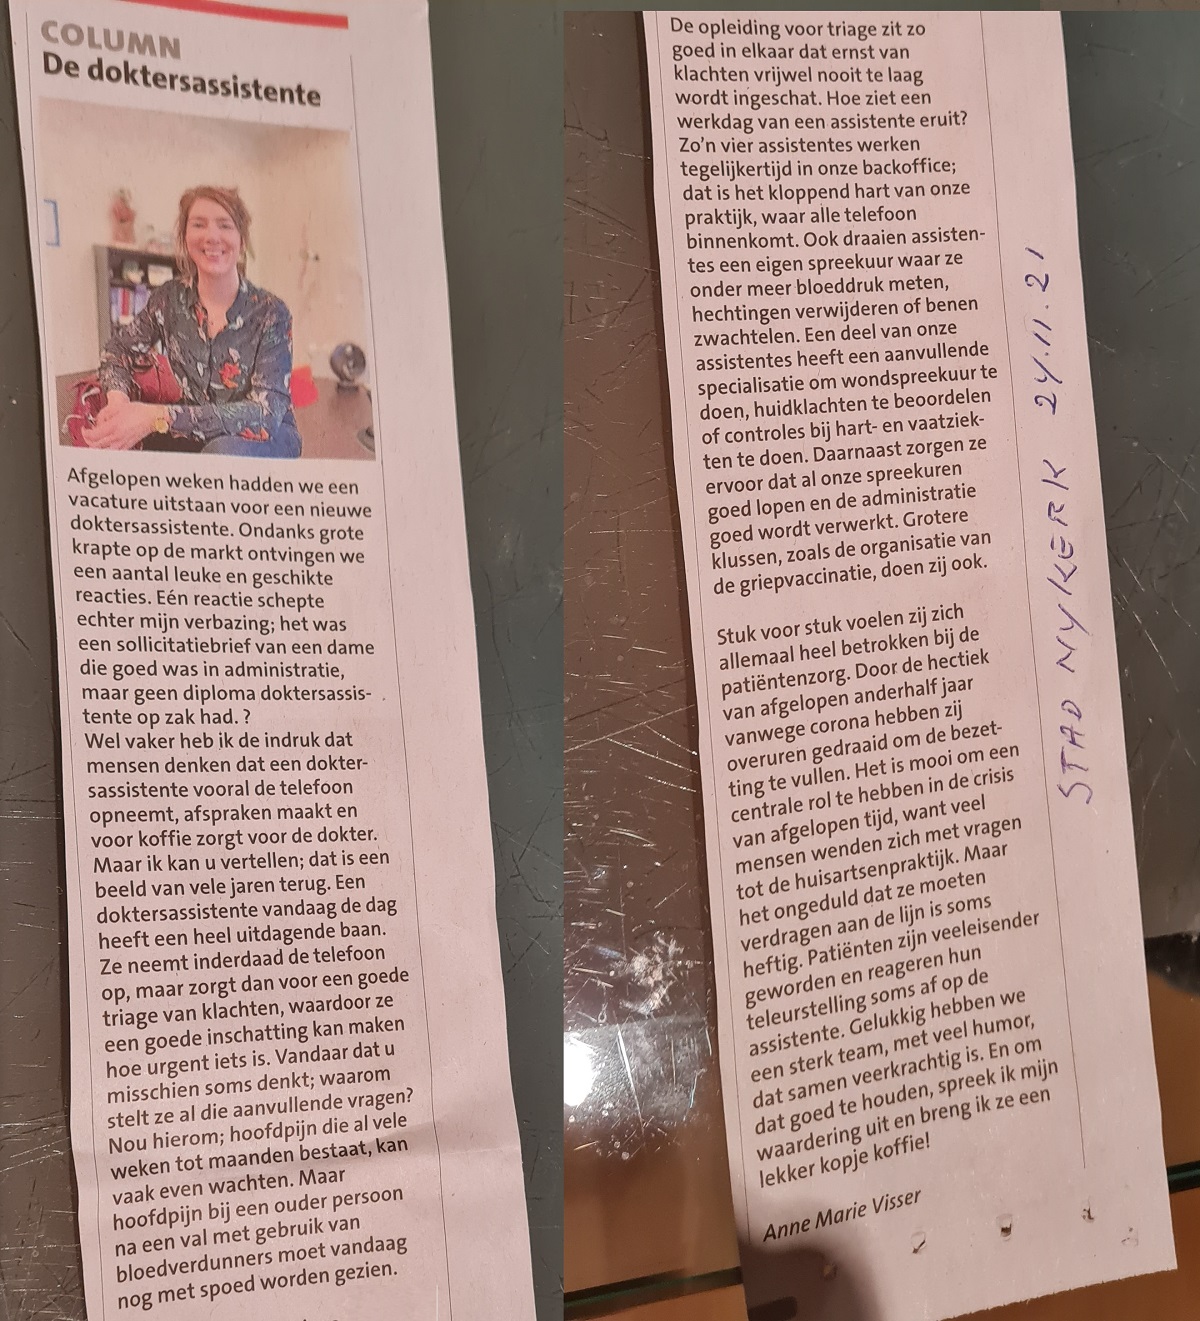 COLUMN
De doktersassistente
Afgelopen weken hadden we een
vacature uitstaan voor een nieuwe
doktersassistente. Ondanks grote
krapte op de markt ontvingen we
een aantal leuke en geschikte
reacties. Eén reactie schepte
echter mijn verbazing; het was
een sollicitatiebrief van een dame
die goed was in administratie,
maar geen diploma doktersassis-
tente op zak had. ?
Wel vaker heb ik de indruk dat
mensen denken dat een dokter-
sassistente vooral de telefoon
opneemt, afspraken maakt en
voor koffie zorgt voor de dokter.
Maar ik kan u vertellen; dat is een
beeld van vele jaren terug. Een
doktersassistente vandaag de dag
heeft een heel uitdagende baan.
Ze neemt inderdaad de telefoon
op, maar zorgt dan voor een goede
triage van klachten, waardoor ze
een goede inschatting kan maken
hoe urgent iets is. Vandaar dat u
misschien soms denkt; waarom
stelt ze al die aanvullende vragen?
Nou hierom; hoofdpijn die al vele
weken tot maanden bestaat, kan
vaak even wachten. Maar
hoofdpijn bij een ouder persoon
na een val met gebruik van
bloedverdunners moet vandaag
nog met spoed worden gezien.
De opleiding voor triage zit zo
goed in elkaar dat ernst van
klachten vrijwel nooit te laag
wordt ingeschat. Hoe ziet een
werkdag van een assistente eruit?
Zo'n vier assistentes werken
tegelijkertijd in onze backoffice;
dat is het kloppend hart van onze
praktijk, waar alle telefoon
binnenkomt. Ook draaien assisten-
tes een eigen spreekuur waar ze
onder meer bloeddruk meten,
hechtingen verwijderen of benen
zwachtelen. Een deel van onze
assistentes heeft een aanvullende
specialisatie om wondspreekuur te
doen, huidklachten te beoordelen
of controles bij hart- en vaatziek-
ten te doen. Daarnaast zorgen ze
ervoor dat al onze spreekuren
goed lopen en de administratie
goed wordt verwerkt. Grotere
klussen, zoals de organisatie van
de griepvaccinatie, doen zij ook.
Stuk voor stuk voelen zij zich
allemaal heel betrokken bij de
patiëntenzorg. Door de hectiek
van afgelopen anderhalf jaar
vanwege corona hebben zij
overuren gedraaid om de bezet-
ting te vullen. Het is mooi om een
centrale rol te hebben in de crisis
van afgelopen tijd, want veel
mensen wenden zich met vragen
tot de huisartsenpraktijk. Maar
het ongeduld dat ze moeten
verdragen aan de lijn is soms
heftig. Patiënten zijn veeleisender
geworden en reageren hun
teleurstelling soms af op de
assistente. Gelukkig hebben we
een sterk team, met veel humor,
dat samen veerkrachtig is. En om
dat goed te houden, spreek ik mijn
waardering uit en breng ik ze een
lekker kopje koffie!
Anne Marie Visser
STAD NYKERK 24.11.21